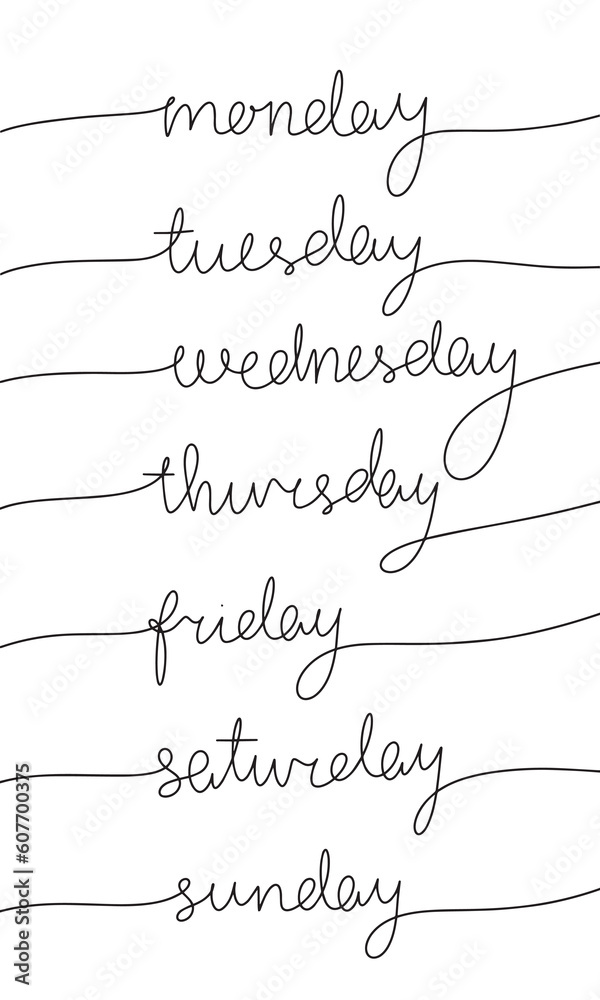 monday
tuesday
wednesday
thursday
friday
saturday
sunday
Adobe Stock | #607700375